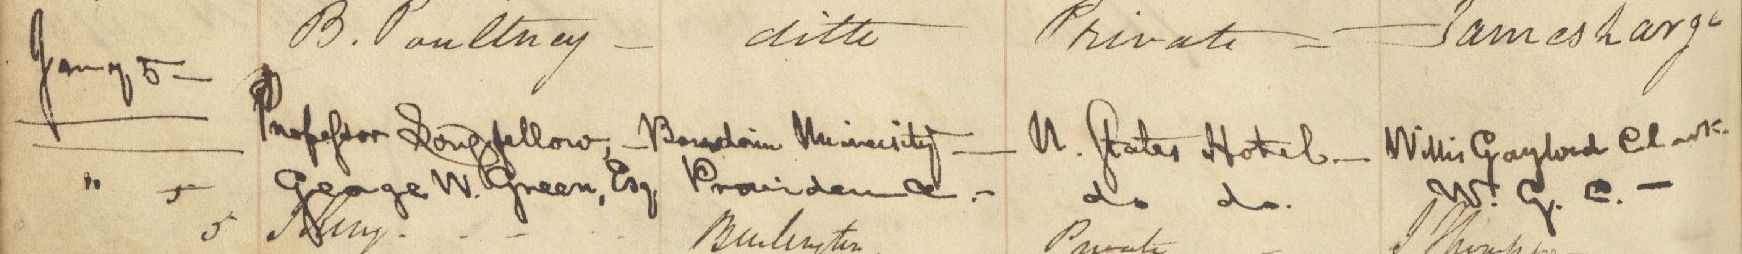 B. Poultney — ditto Private — James Large
Jany 5 —
Professor Longfellow, — Bowdoin University — U. States Hotel. — Willis Gaylord Clark.
" 5 George W. Green, Esq, Providence. — do do. W. G. C. —
5 Burlington Private